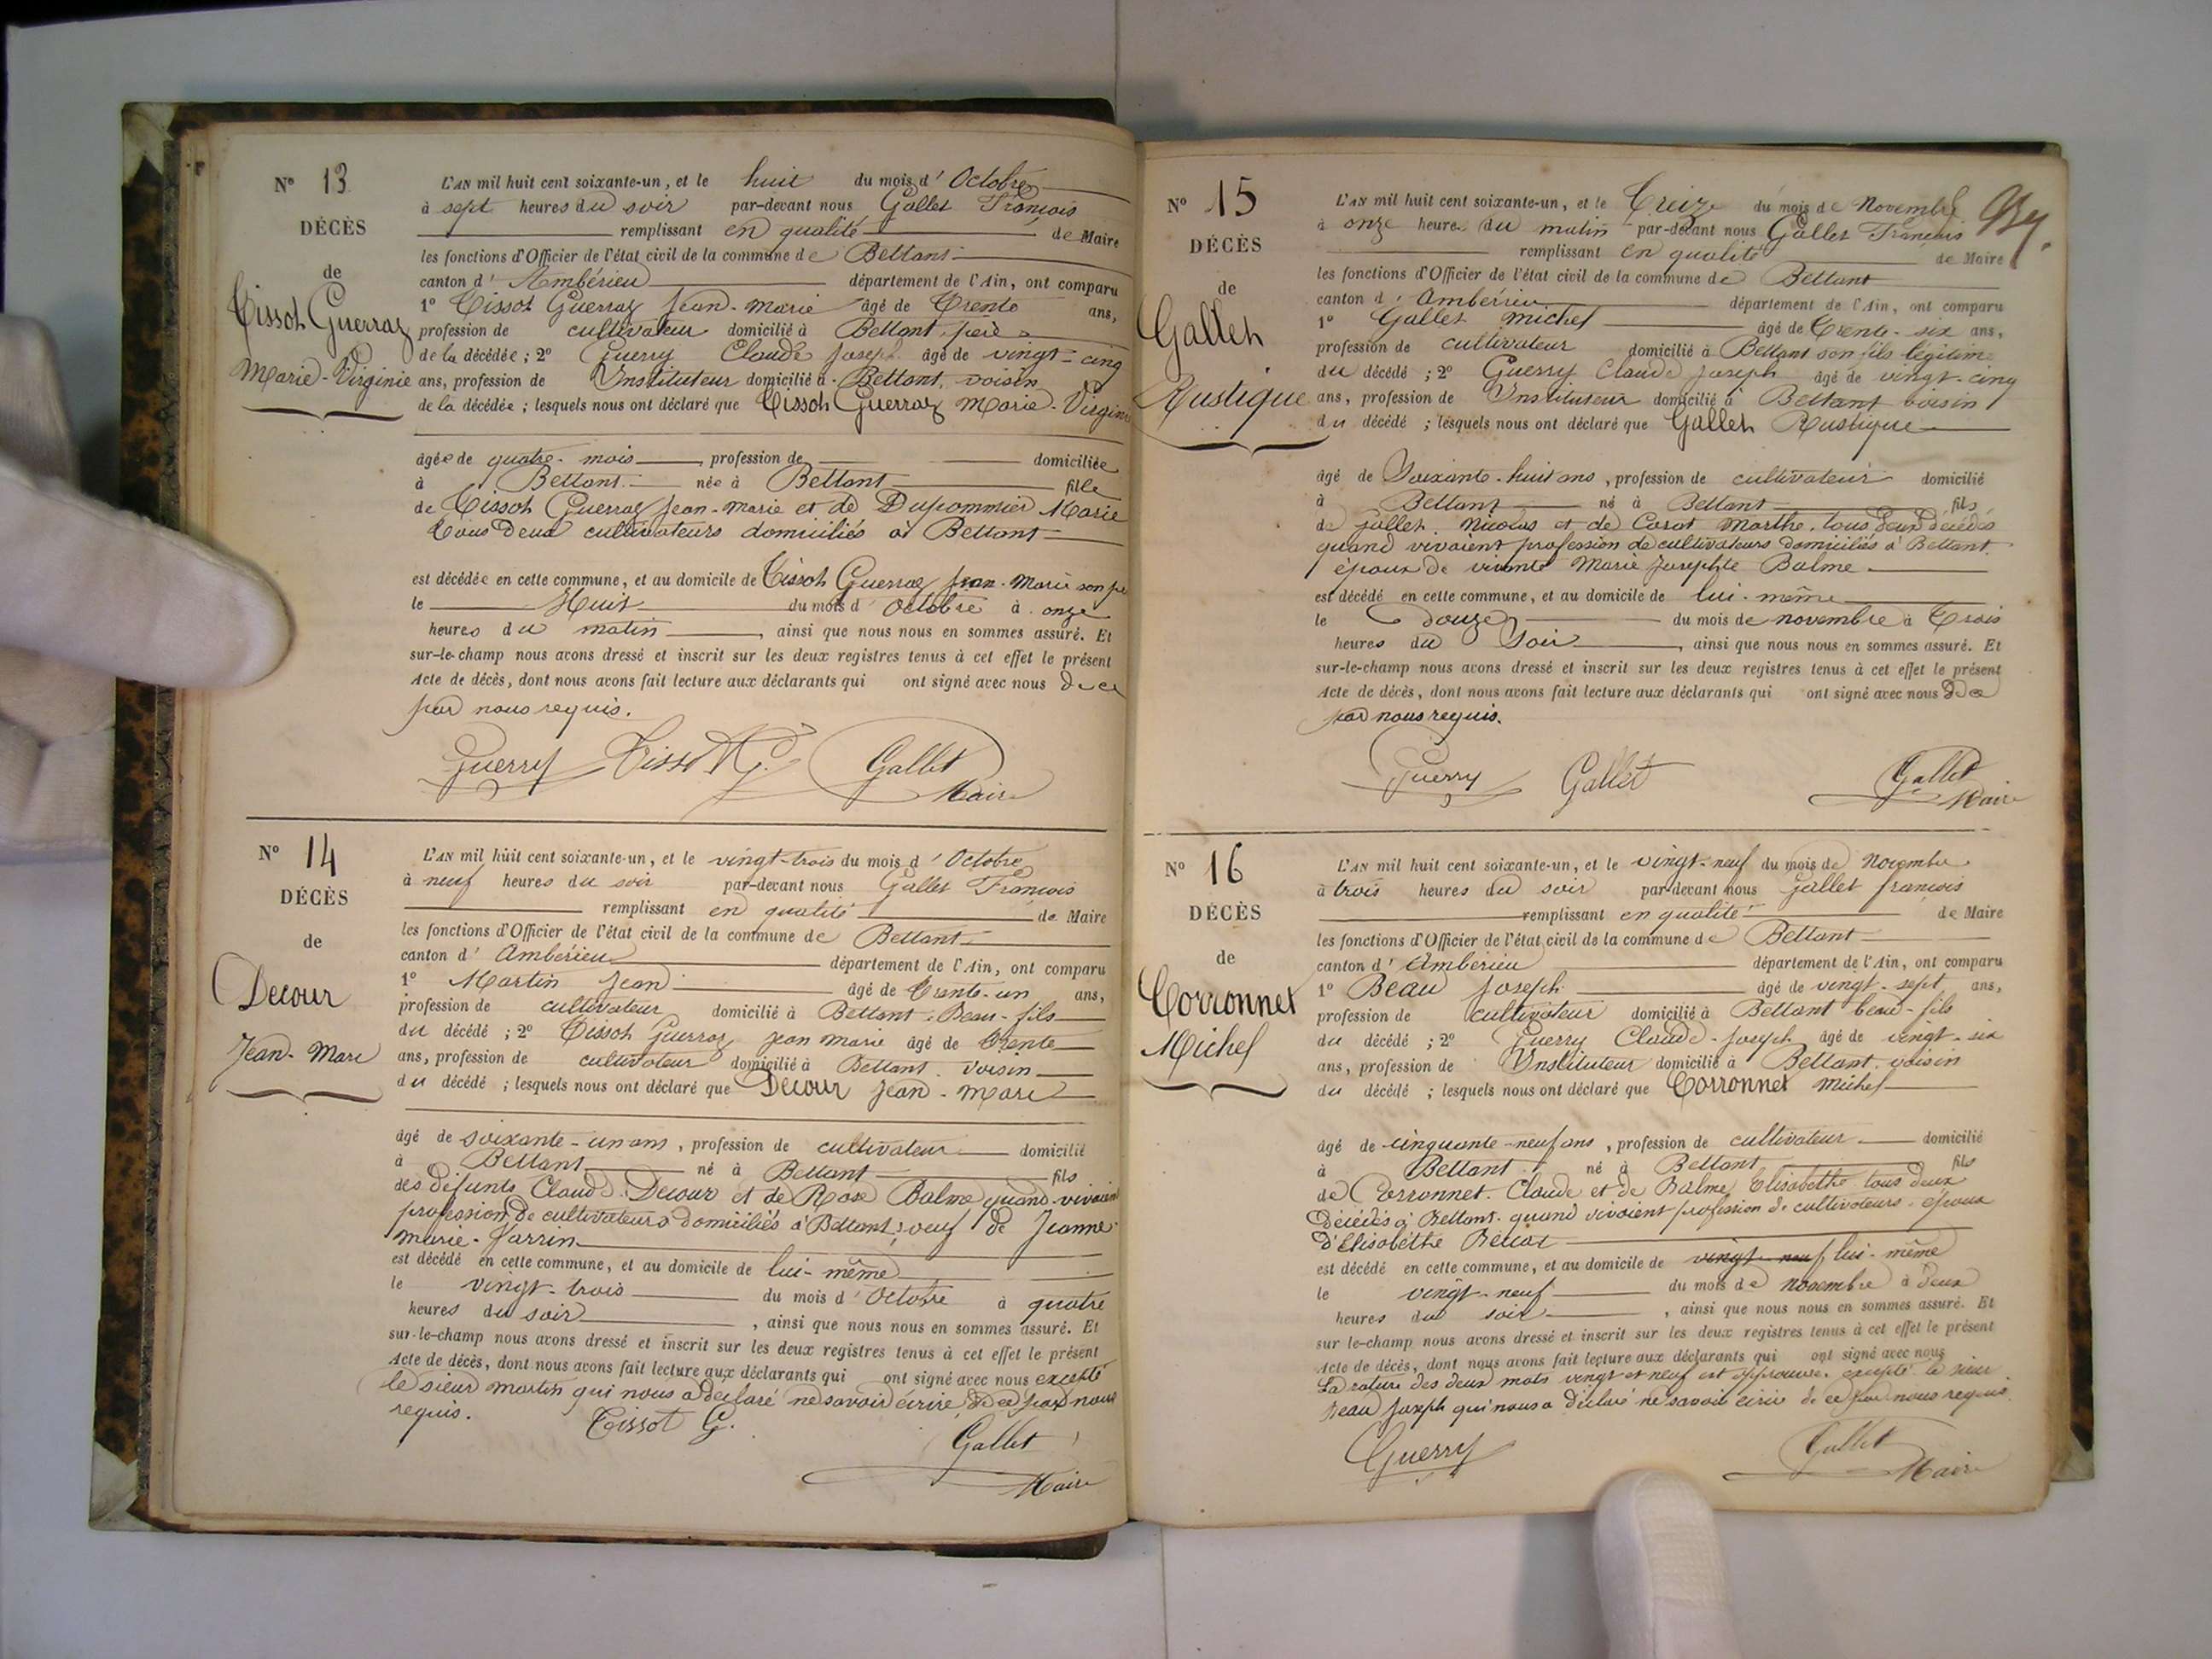 N° 13
DÉCÈS
de
Tissot Guerraz
Marie-Virginie
L'AN mil huit cent soixante-un, et le huit du mois d'Octobre
à sept heures du soir par-devant nous Gallet François
remplissant en qualité de Maire
les fonctions d'Officier de l'état civil de la commune de Bettant
canton d'Ambérieu département de l'Ain, ont comparu
1° Tissot Guerraz Jean-Marie âgé de Trente ans,
profession de cultivateur domicilié à Bettant, père
de la décédée ; 2° Guerry Claude Joseph âgé de vingt-cinq
ans, profession de Instituteur domicilié à Bettant, voisin
de la décédée ; lesquels nous ont déclaré que Tissot Guerraz Marie-Virginie
âgée de quatre-mois, profession de domiciliée
à Bettant née à Bettant fille
de Tissot Guerraz Jean-Marie et de Dupommier Marie
tous deux cultivateurs domiciliés à Bettant
est décédée en cette commune, et au domicile de Tissot Guerraz Jean-Marie son
le Huit du mois d'Octobre à onze
heures du matin, ainsi que nous nous en sommes assuré. Et
sur-le-champ nous avons dressé et inscrit sur les deux registres tenus à cet effet le présent
Acte de décès, dont nous avons fait lecture aux déclarants qui ont signé avec nous de ce
par nous requis.
Guerry Tissot G. Gallet
Maire
N° 14
DÉCÈS
de
Decour
Jean-Marc
L'AN mil huit cent soixante-un, et le vingt-trois du mois d'Octobre
à neuf heures du soir par-devant nous Gallet François
remplissant en qualité de Maire
les fonctions d'Officier de l'état civil de la commune de Bettant
canton d'Ambérieu département de l'Ain, ont comparu
1° Martin Jean âgé de Trente-un ans,
profession de cultivateur domicilié à Bettant, Beau-fils
du décédé ; 2° Tissot Guerraz Jean Marie âgé de trente
ans, profession de cultivateur domicilié à Bettant voisin
du décédé ; lesquels nous ont déclaré que Decour Jean-Marc
âgé de soixante-un ans, profession de cultivateur domicilié
à Bettant né à Bettant fils
des défunts Claude Decour et de Rose Balme quand vivaient
profession de cultivateurs domiciliés à Bettant, veuf de Jeanne
Marie
est décédé en cette commune, et au domicile de lui-même
le vingt-trois du mois d'Octobre à quatre
heures du soir, ainsi que nous nous en sommes assuré. Et
sur-le-champ nous avons dressé et inscrit sur les deux registres tenus à cet effet le présent
Acte de décès, dont nous avons fait lecture aux déclarants qui ont signé avec nous excepté
le sieur Martin qui nous a déclaré ne savoir écrire de ce par nous
requis. Tissot G.
Gallet
Maire
N° 15
DÉCÈS
de
Gallet
Rustique
L'AN mil huit cent soixante-un, et le Treize du mois de Novembre
à onze heures du matin par-devant nous Gallet François
remplissant en qualité de Maire
les fonctions d'Officier de l'état civil de la commune de Bettant
canton d'Ambérieu département de l'Ain, ont comparu
1° Gallet Michel âgé de Trente-six ans,
profession de cultivateur domicilié à Bettant son fils légitime
du décédé ; 2° Guerry Claude Joseph âgé de vingt-cinq
ans, profession de Instituteur domicilié à Bettant voisin
du décédé ; lesquels nous ont déclaré que Gallet Rustique
âgé de Soixante-huit ans, profession de cultivateur domicilié
à Bettant né à Bettant fils
de Gallet Nicolas et de Marthe, tous deux décédés
quand vivaient profession de cultivateurs domiciliés à Bettant
époux de vivante Marie Josephte Balme
est décédé en cette commune, et au domicile de lui-même
le douze du mois de novembre à Trois
heures du Soir, ainsi que nous nous en sommes assuré. Et
sur-le-champ nous avons dressé et inscrit sur les deux registres tenus à cet effet le présent
Acte de décès, dont nous avons fait lecture aux déclarants qui ont signé avec nous de ce
par nous requis.
Guerry Gallet Gallet
Maire
N° 16
DÉCÈS
de
Corronnet
Michel
L'AN mil huit cent soixante-un, et le vingt-neuf du mois de Novembre
à trois heures du soir par-devant nous Gallet françois
remplissant en qualité de Maire
les fonctions d'Officier de l'état civil de la commune de Bettant
canton d'Ambérieu département de l'Ain, ont comparu
1° Beau Joseph âgé de vingt-sept ans,
profession de cultivateur domicilié à Bettant beau-fils
du décédé ; 2° Guerry Claude-Joseph âgé de vingt-six
ans, profession de Instituteur domicilié à Bettant voisin
du décédé ; lesquels nous ont déclaré que Corronnet Michel
âgé de cinquante-neuf ans, profession de cultivateur domicilié
à Bettant né à Bettant fils
de Corronnet Claude et de Balme Elisabethe tous deux
décédés à Bettant quand vivoient profession de cultivateurs époux
d'Elisabethe
est décédé en cette commune, et au domicile de vingt-neuf lui-même
le vingt-neuf du mois de novembre à deux
heures du soir, ainsi que nous nous en sommes assuré. Et
sur le-champ nous avons dressé et inscrit sur les deux registres tenus à cet effet le présent
Acte de décès, dont nous avons fait lecture aux déclarants qui ont signé avec nous
La rature des deux mots vingt et neuf est approuvée. excepté le sieur
Beau Joseph qui nous a déclaré ne savoir écrire de ce par nous requis.
Guerry Gallet
Maire